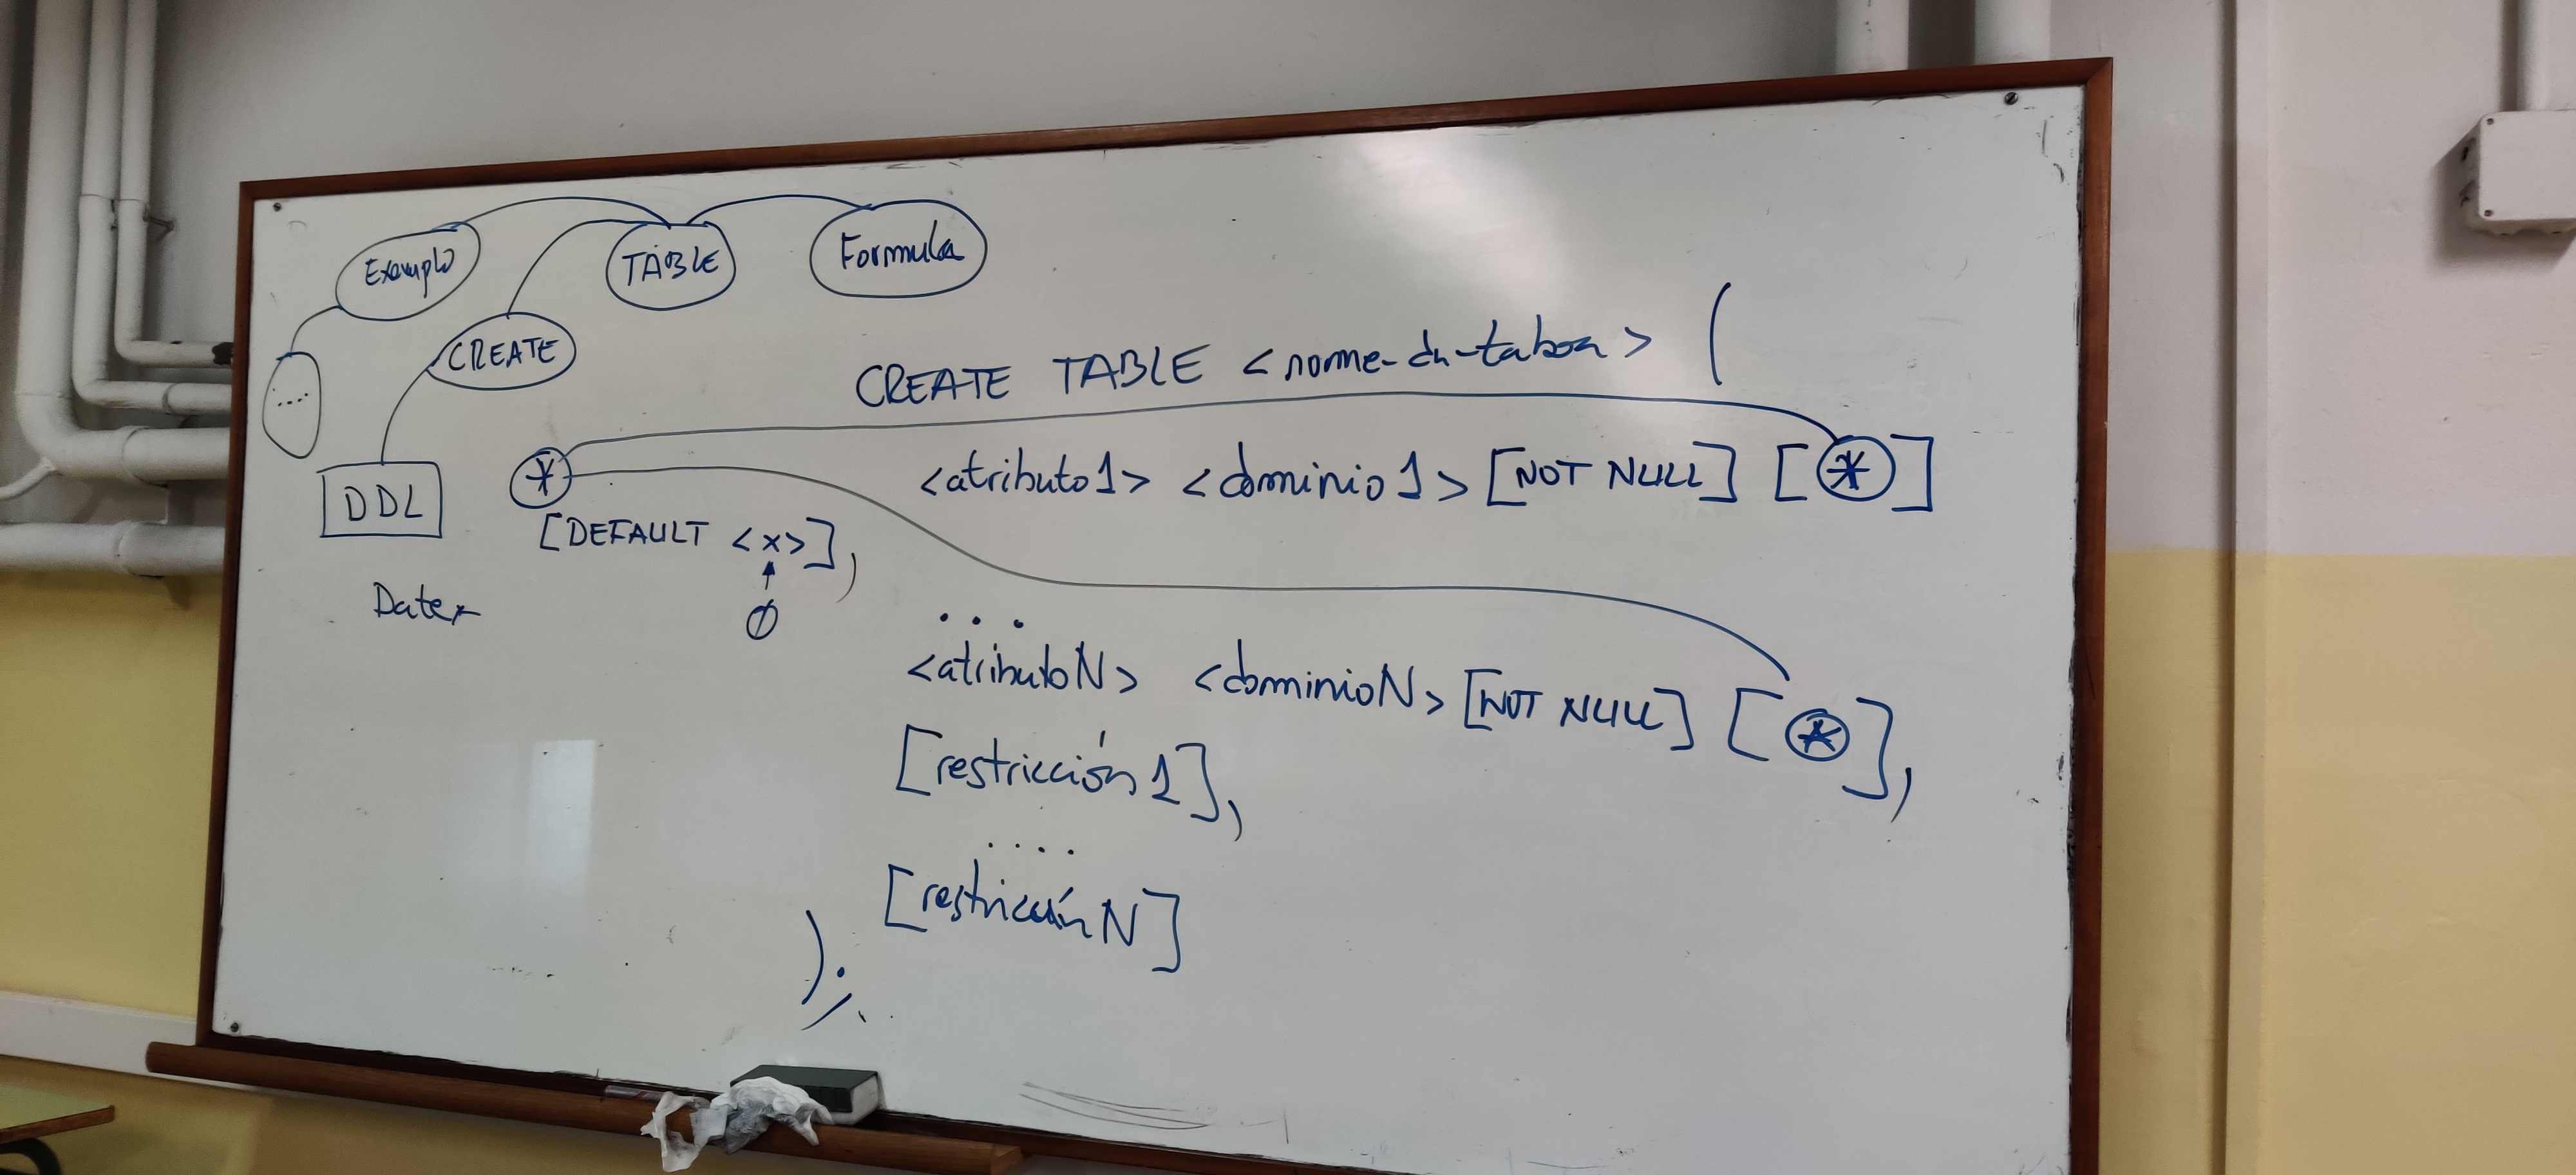 Exemplo
TABLE
Formula
CREATE
....
DDL
CREATE TABLE <nome-da-taboa> (
<atributo1> <dominio1> [NOT NULL] [*]
*
[DEFAULT <x>],
∅
...
<atributoN> <dominioN> [NOT NULL] [*],
[restricción 1],
....
[restricción N]
);